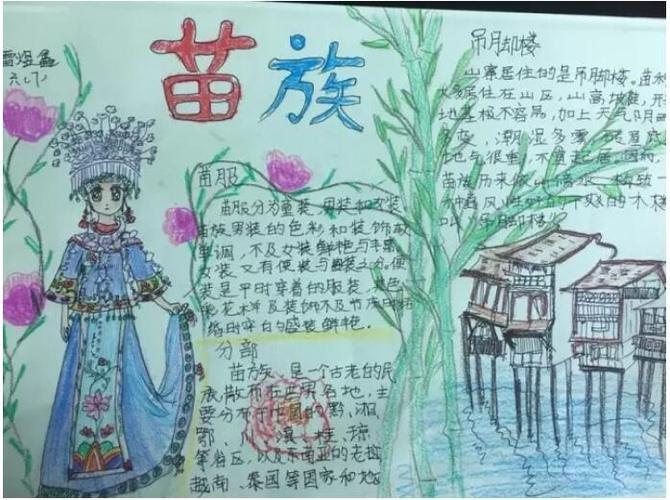 苗族
六(7)
吊脚楼
山寨居住的是吊脚楼。苗族
大多居住在山区,山高坡陡,开
地基极不容易,加上天气阴雨
多变,潮湿多雾,底
地气很重,不宜起居。因而,
苗族历来依山傍水,构筑一
种通风性好的干爽的木楼
叫“吊脚楼”
苗服
苗服分为童装,男装和女装。
苗族男装的色彩和装饰较
单调,不及女装鲜艳与丰富。
女装又有便装与盛装之分。便
装是平时穿着的服装,其色
彩花样及装饰不及节庆时
时穿的盛装鲜艳。
分部
苗族,是一个古老的民
族,散布在世界各地,主
要分布于中国的黔、湘、
鄂、川、滇、桂、琼
等省区,以及东南亚的老挝
越南、泰国等国家和地